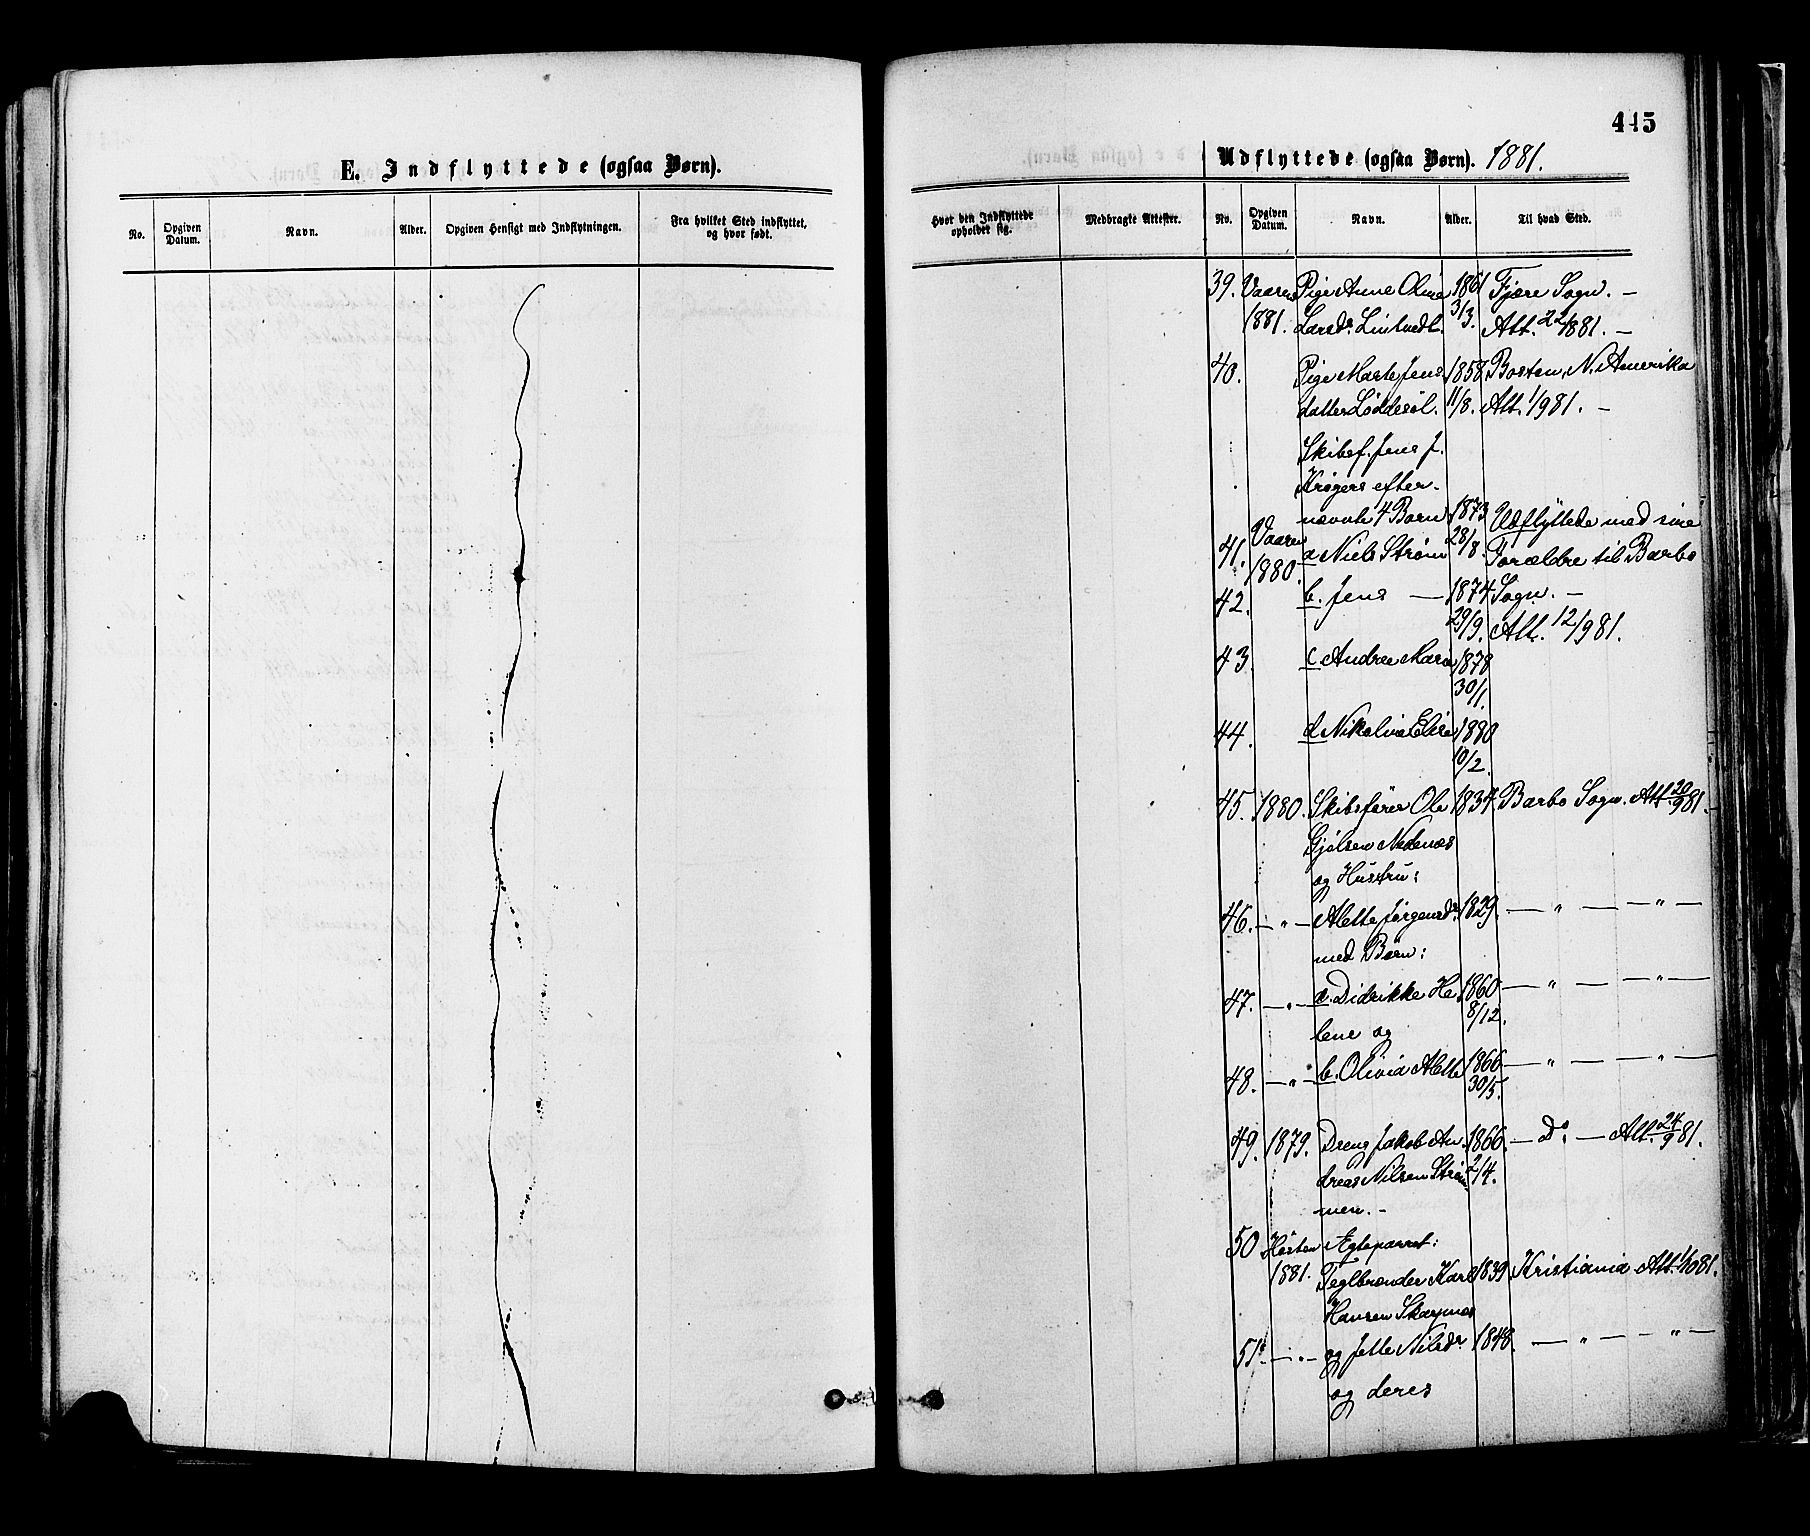 445
E. Indflyttede (ogsaa Børn).
Udflyttede (ogsaa Børn). 1881.
No. Opgiven Datum. Navn. Alder. Opgiven Hensigt med Indflytningen. Fra hvilket Sted indflyttet, og hvor født.
Hvor den Indflyttede opholder sig. Medbragte Attester. No. Opgiven Datum. Navn. Alder. Til hvad Sted.
39. Vaaren Pige Anne Oline 1861 Fjære Sogn. —
1881. Larsdr. 3/3. Att. 22/ 1881. —
40. Pige Marte Jens 1858 Boston, N. Amerika
datter Løddesøl. 11/8. Att. 1/9 81. —
Skibsf. Jens J.
Krøgers efter-
nævnte 4 Børn 1873 Udflyttede med sine
41. Vaaren 1880. a Niels Strøm 28/8. Forældre til Barbo
42. b. Jens — 1874 Sogn. —
29/9. Att. 12/9 81.
43. c Andrea Marie 1878
30/1.
44. d Nikoline Elise 1880
10/2.
45. 1880. Skibsfører Ole 1834. Barbo Sogn. Att. 20/9 81. —
Gjølsen Nedenæs
og Hustru:
46. — " — Alette Jørgensdr. 1829. — " — — " —
med Børn:
47. — " — a. Didrikke He 1860 — " — — " —
lene og 8/12.
48. — " — b. Olivia Alette 1866 — " — — " —
30/5.
49. 1879. Dreng Jakob An 1866. — Do. — Att. 24/9 81.
dreas Nilsen Strøm 2/4.
men. —
50 Høsten Ægteparret:
1881. Teglbrænder Karl 1839 Kristiania Att. 1/10 81.
Hansen
51. — " — og Jette Nilsdr. 1848. — " — — " —
og deres